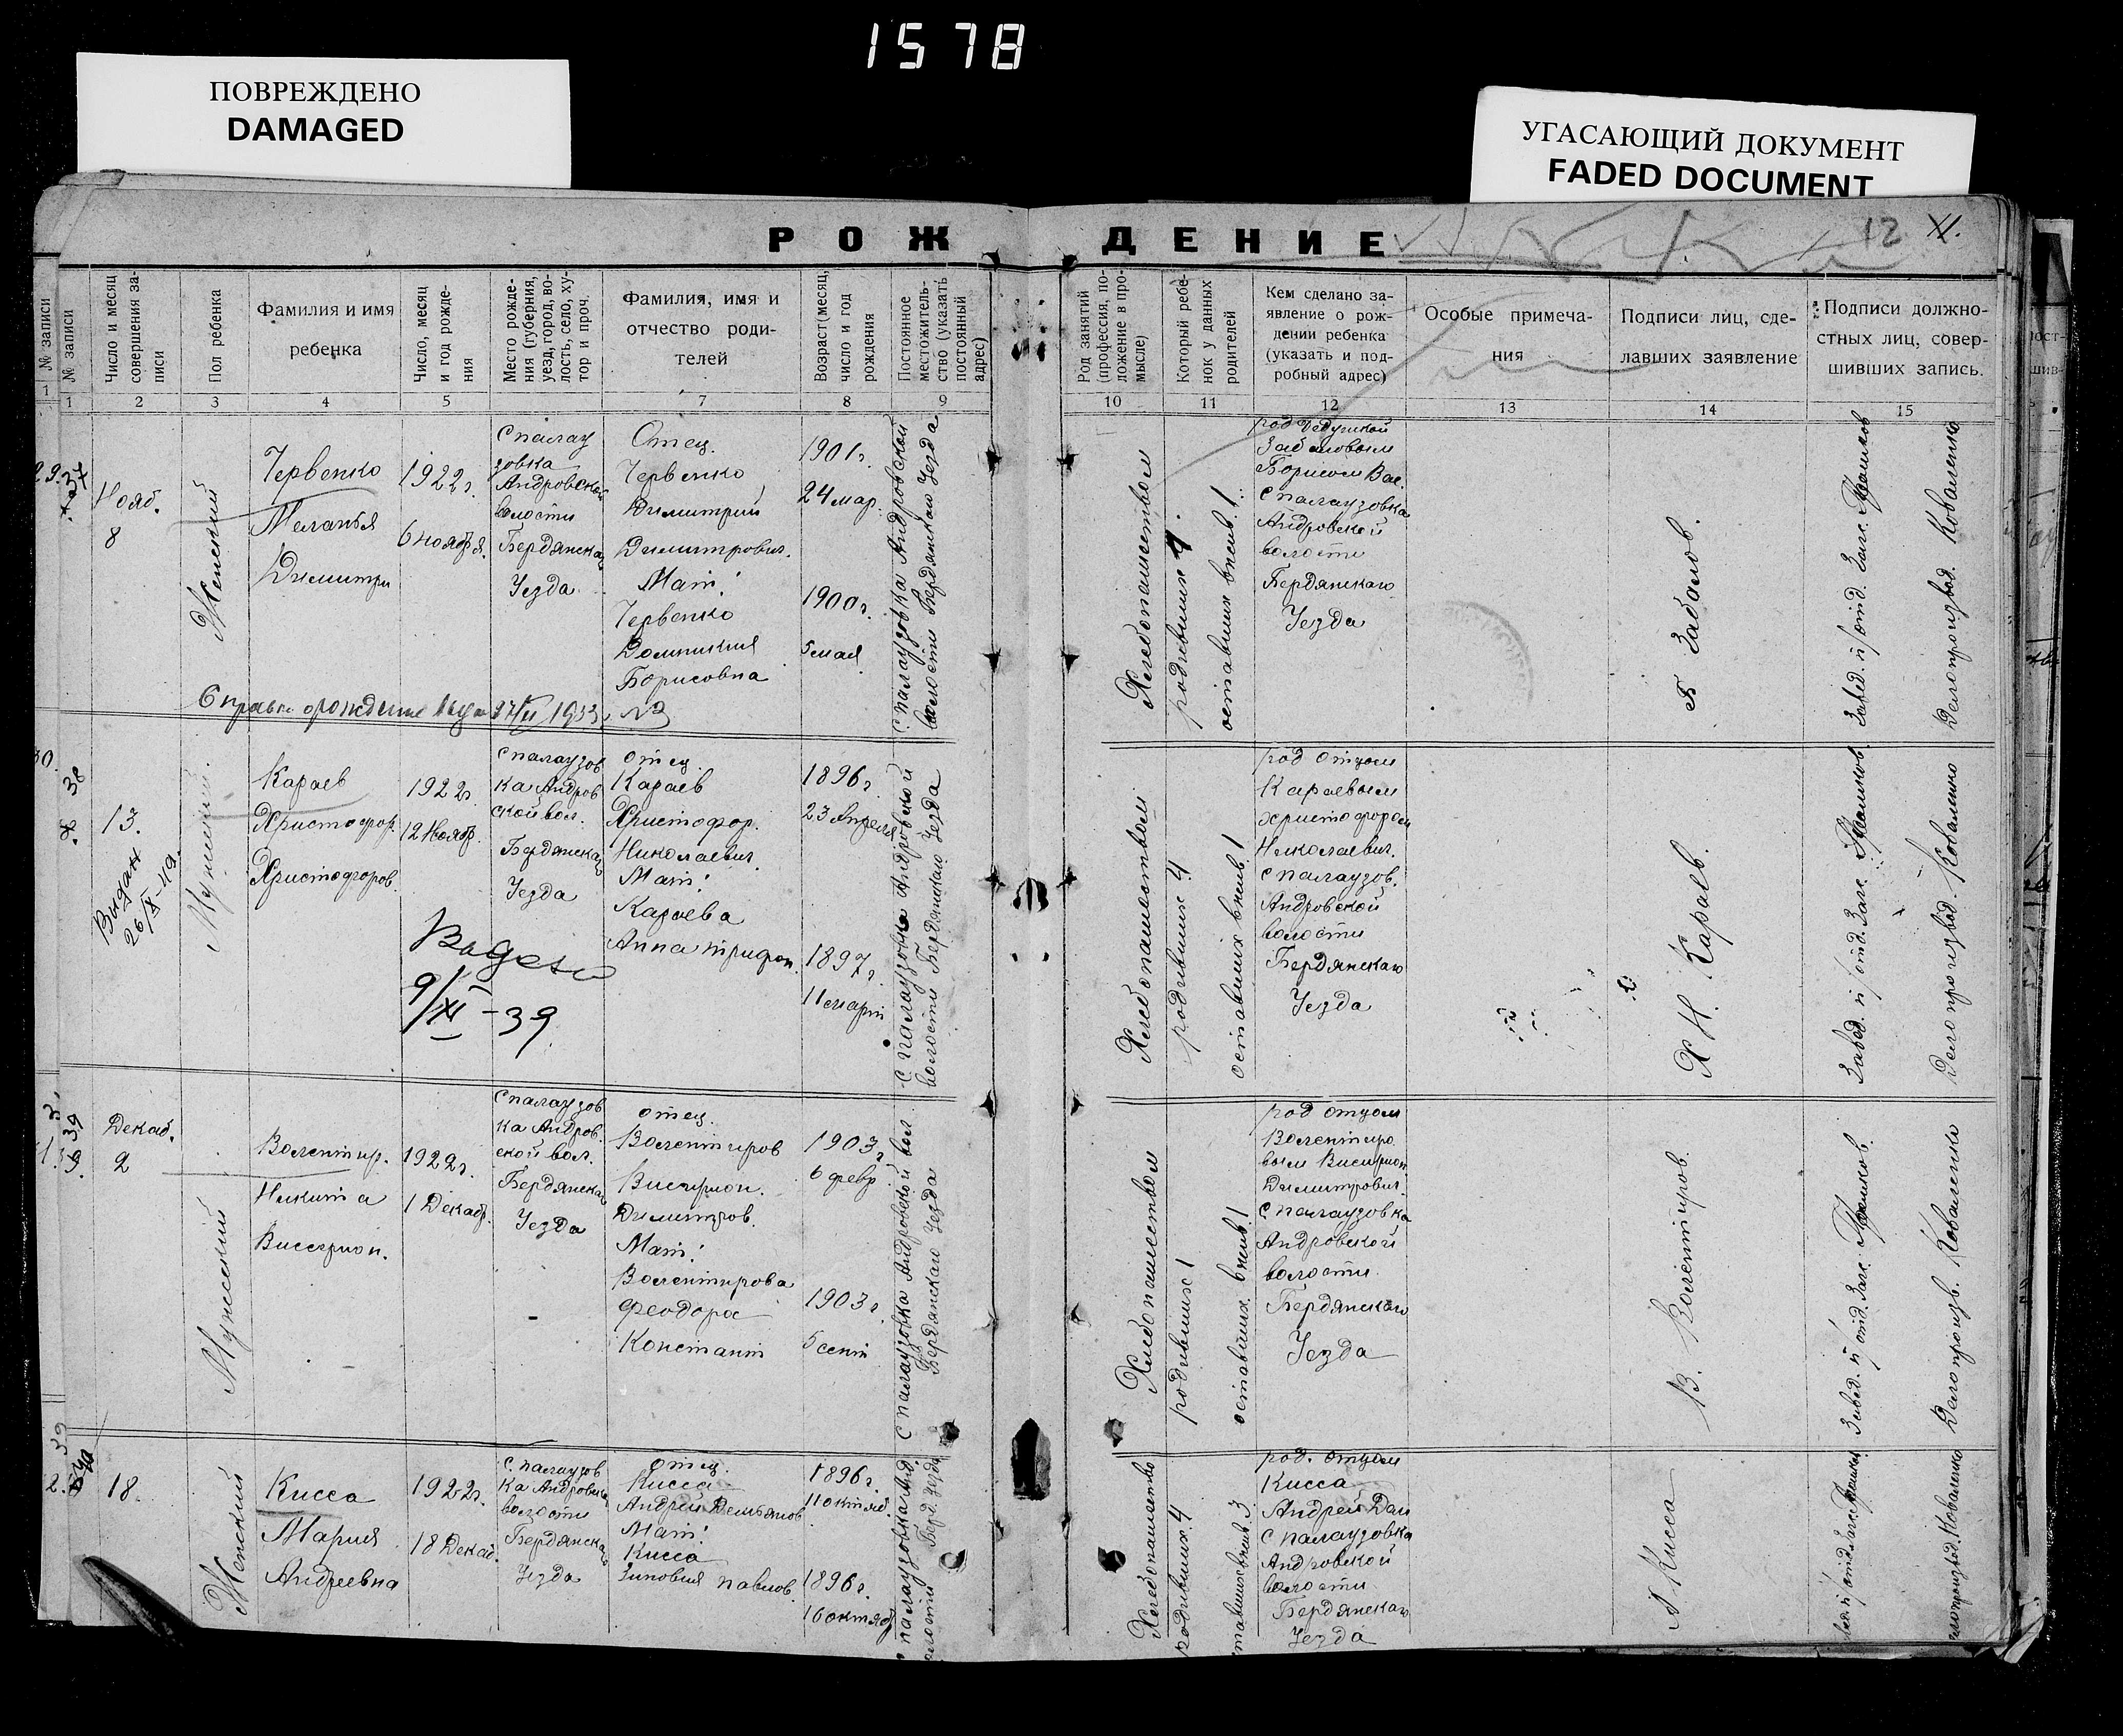 1578
ПОВРЕЖДЕНО
DAMAGED
УГАСАЮЩИЙ ДОКУМЕНТ
FADED DOCUMENT
РОЖДЕНИЕ
12
XI.
№ записи
№ записи
Число и месяц
совершения за-
писи
Пол ребенка
Фамилия и имя
ребенка
Число, месяц
и год рожде-
ния
Место рожде-
ния (губерния,
уезд, город, во-
лость, село, ху-
тор и проч.
Фамилия, имя и
отчество роди-
телей
Возраст(месяц,
число и год
рождения
Постоянное
местожитель-
ство (указать
постоянный
адрес)
Род занятий
(профессия, по-
ложение в про-
мысле)
Который ребе-
нок у данных
родителей
Кем сделано за-
явление о рож-
дении ребенка
(указать и под-
робный адрес)
Особые примеча-
ния
Подписи лиц, сде-
лавших заявление
Подписи должно-
стных лиц, совер-
шивших запись.
1
1
2
3
4
5
6
7
8
9
10
11
12
13
14
15
Нояб.
8
Женский
Червенко
Меланья
Димитри
1922г.
6 ноября.
с палау
зовка
Андровской
волости
Бердянска
Уезда
Отец.
Червенко
Димитрий
Димитрович.
Мат:
Червенко
Домникия
Борисовна
1901г.
24 мар.
1900г.
5 мая
с палаузовка Андровской
волости Бердянскаго Уезда
Хлебопашеством
родившихся
оставших вжив. 1.
род Дедушкой
Забановым
Борисом Вас.
с палаузовка
Андровской
волости
Бердянскаго
Уезда
Б Забанов.
Делопроизвод. Коваленко
1933. №
30.
38
13.
Выдан
26/X-49.
Мужский.
Караев
Христофор.
Христофоров.
1922г.
12 Нояб.
с палаузов
ка Андров
ской вол.
Бердянска
Уезда
9/XI-39
отец.
Караев
Христофор.
Николаевич.
Мат:
Караева
Анна трифон.
1896г.
23 Апреля
1897г.
11 март
с палаузовка Андровской
волости Бердянскаго Уезда
Хлебопашеством
родившихся 4
оставших вжив. 1
род отцом
Караевым
христофором
Николаевич.
с палаузов.
Андровской
волости
Бердянскаго
Уезда
Х Н. Караев.
Делопроизвод. Коваленко
39
Декаб.
2
Мужский
Волентир.
Никита
Виссарион.
1922г.
1 Декаб.
с палаузов
ка Андров.
ской вол.
Бердянска
Уезда
отец.
Волентиров
Висарион.
Димитров.
Мат:
Волентирова
Феодора
Констант
1903г
6 февр
1903г
5 сент
с палаузовка Андровской вол.
Бердянскаго Уезда
Хлебопашеством
родившихс 1
оставших. вжив. 1
род отцом
Волентиро
вым Висарион
Димитрович.
с палаузовка
Андровской
волости.
Бердянскаго
Уезда
В. Волентиров.
Делопроизв. Коваленко
18.
Женский
Кисса
Мария
Андреевна
1922г.
18 Декаб.
с. палаузов
ка Андровска
волости
Бердянска
Уезда
отец.
Кисса
Андрей Демьянов
Мат:
Кисса
Зиновия павлов.
1896г.
11 октяб.
1896г.
16 октяб
Хлебопашество
родившихс 4
род. отцом
Кисса
Андрей Дем
с палаузовка
Андровской
волости
Бердянскаго
Уезда
А. Кисса
Коваленко